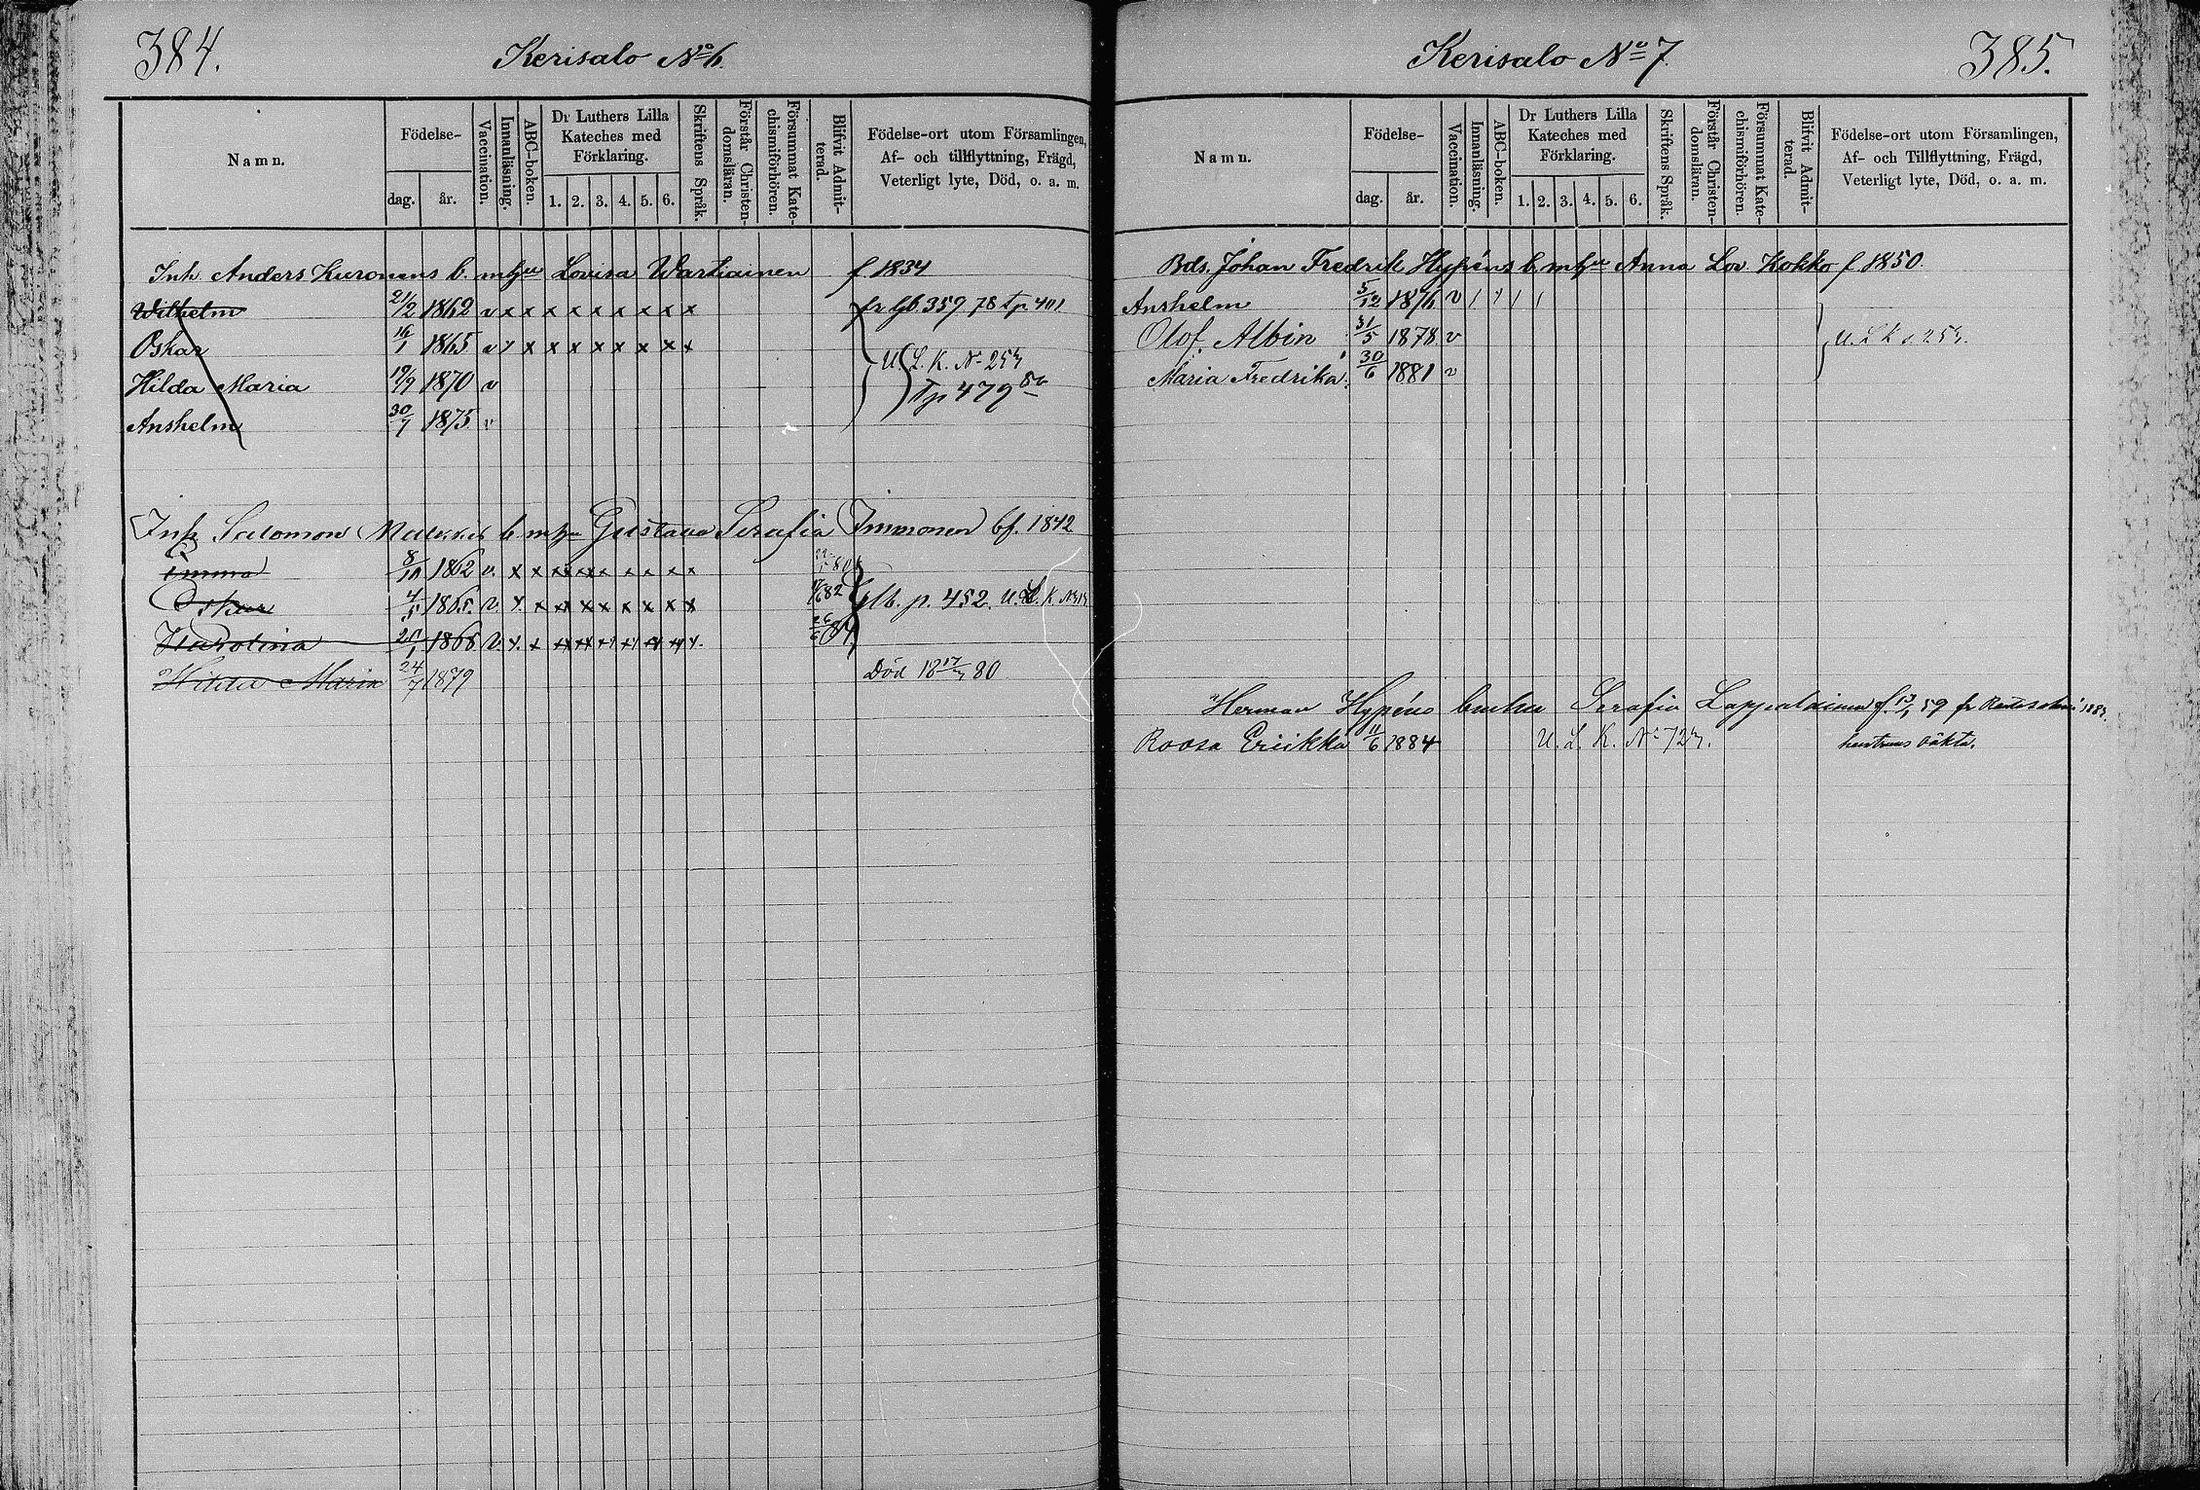 384.
Kerisalo No 6.
Namn.
Födelse-
dag.
år.
Vaccination.
Innanläsning.
ABC-boken.
Dr Luthers Lilla
Kateches med
Förklaring.
1. 2. 3. 4. 5. 6.
Skriftens Språk.
Förstår Christen-
domsläran.
Försummat Kate-
chismiförhören.
Blifvit Admit-
terad.
Födelse-ort utom Församlingen,
Af- och tillflyttning, Frägd,
Veterligt lyte, Död, o. a. m.
Inh. Anders Kuronens b. m hu Lovisa Wartiainen f 1834
Wilhelm 21/2 1862 v x x x x x x x x x fr lgb 359 78 tp 401
Oskar 16/1 1865 v x x x x x x x x
Hilda Maria 19/9 1870 v U. L. K. No 25
Tp 479
Anshelm 30/7 1875 v
Inh Salomon b. m hu Gustava Serafia Immonen f. 1842
Emma 8/11 1862 v. x x x x x x x x x 80
Oskar 4/5 1865. v. x x x x x x x x x 82 lb. p. 452. U. L. K. No
Karolina 1868 v. x x x x x x x x x 84
Hilda Maria 24/7 1879 Död 18 80
385.
Kerisalo No 7
Namn.
Födelse-
dag.
år.
Vaccination.
Innanläsning.
ABC-boken.
Dr Luthers Lilla
Kateches med
Förklaring.
1. 2. 3. 4. 5. 6.
Skriftens Språk.
Förstår Christen-
domsläran.
Försummat Kate-
chismiförhören.
Blifvit Admit-
terad.
Födelse-ort utom Församlingen,
Af- och Tillflyttning, Frägd,
Veterligt lyte, Död, o. a. m.
Bds. Johan Fredrik Hypéns b. m hu Anna Lov. Kokko f 1850.
Anshelm 5/12 1876 v
Olof Albin 31/5 1878 v U. L. K. 25
Maria Fredrika 30/6 1881 v
Herman Hypéns Serafia Lappalainen f. 59 fr
Roosa Eriikka 11/6 1884 U. L. K. No 72 hustruns oäkta.